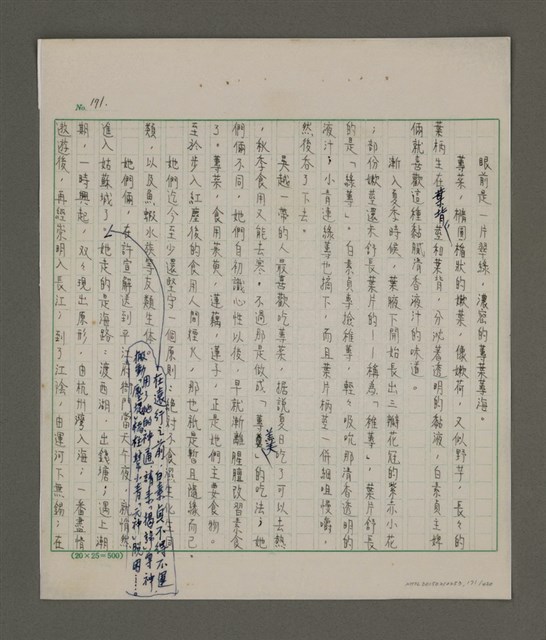 No. 191.
眼前是一片翠綠，濃密的蓴菜蓴海。
蓴菜，橢圓楯狀的嫩葉，像嫩荷，又似野芋，長長的
葉柄生在葉背，莖和葉背，分泌著透明的黏液，白素貞主婢
倆就喜歡這種黏膩清香液汁的味道。
漸入夏季時候，葉腋下開始長出三瓣花冠的紫赤小花
；部份嫩莖還未舒長葉片的——稱為「稚蓴」，葉片舒長
的是「絲蓴」。白素貞專撿稚蓴，輕輕吸吮那清香透明的
液汁；小青連絲蓴也摘下，而且葉片柄莖一併細咀慢嚼，
然後吞了下去。
吳越一帶的人最喜歡吃蓴菜，据說夏日吃了可以去熱
，秋季食用又能去寒，不過那是做成「蓴羹」的吃法；她
們倆不同，她們自初識心性以後，早就漸離腥膻改習素食
了。蓴菜，食用菜莧，蓮藕，蓮子，正是她們主要食物。
至於步入紅塵後的食用人間煙火，那也就是暫且隨緣而已。
她們迄今至少還堅守一個原則：絕對不食胎生化生同
類，以及魚蝦水族等友類生体。
在遠行之前，白素貞不得不運
用了她的神通請來「揭諦穿神
她們倆，在許宣解送到平江府衙門當天午夜，就悄然
進入姑蘇城了。她走的是海路：渡西湖，出錢塘；遇上潮
期，一時興起，双双現出原形，由杭州灣入海；一番盡情
遨遊後，再經崇明入長江；到了江陰，由運河下無錫；在
(20×25=500)